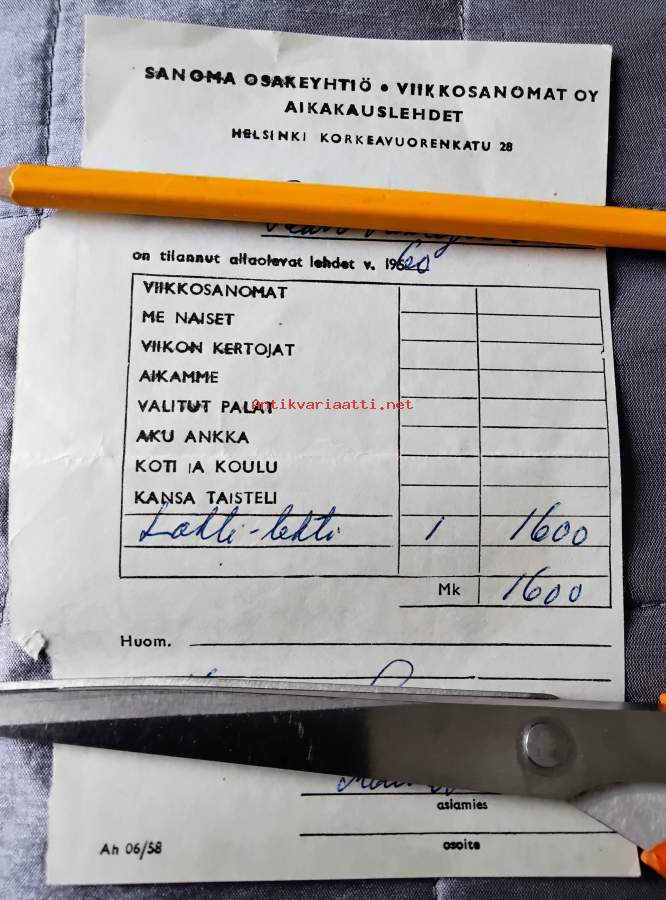 SANOMA OSAKEYHTIÖ • VIIKKOSANOMAT OY
AIKAKAUSLEHDET
HELSINKI KORKEAVUORENKATU 28
on tilannut allaolevat lehdet v. 1960
VIIKKOSANOMAT
ME NAISET
VIIKON KERTOJAT
AIKAMME
VALITUT PALAT
Antikvariaatti.net
AKU ANKKA
KOTI JA KOULU
KANSA TAISTELI
Lahti-lehti 1 1600
Mk 1600
Huom.
asiamies
osoite
Ah 06/58